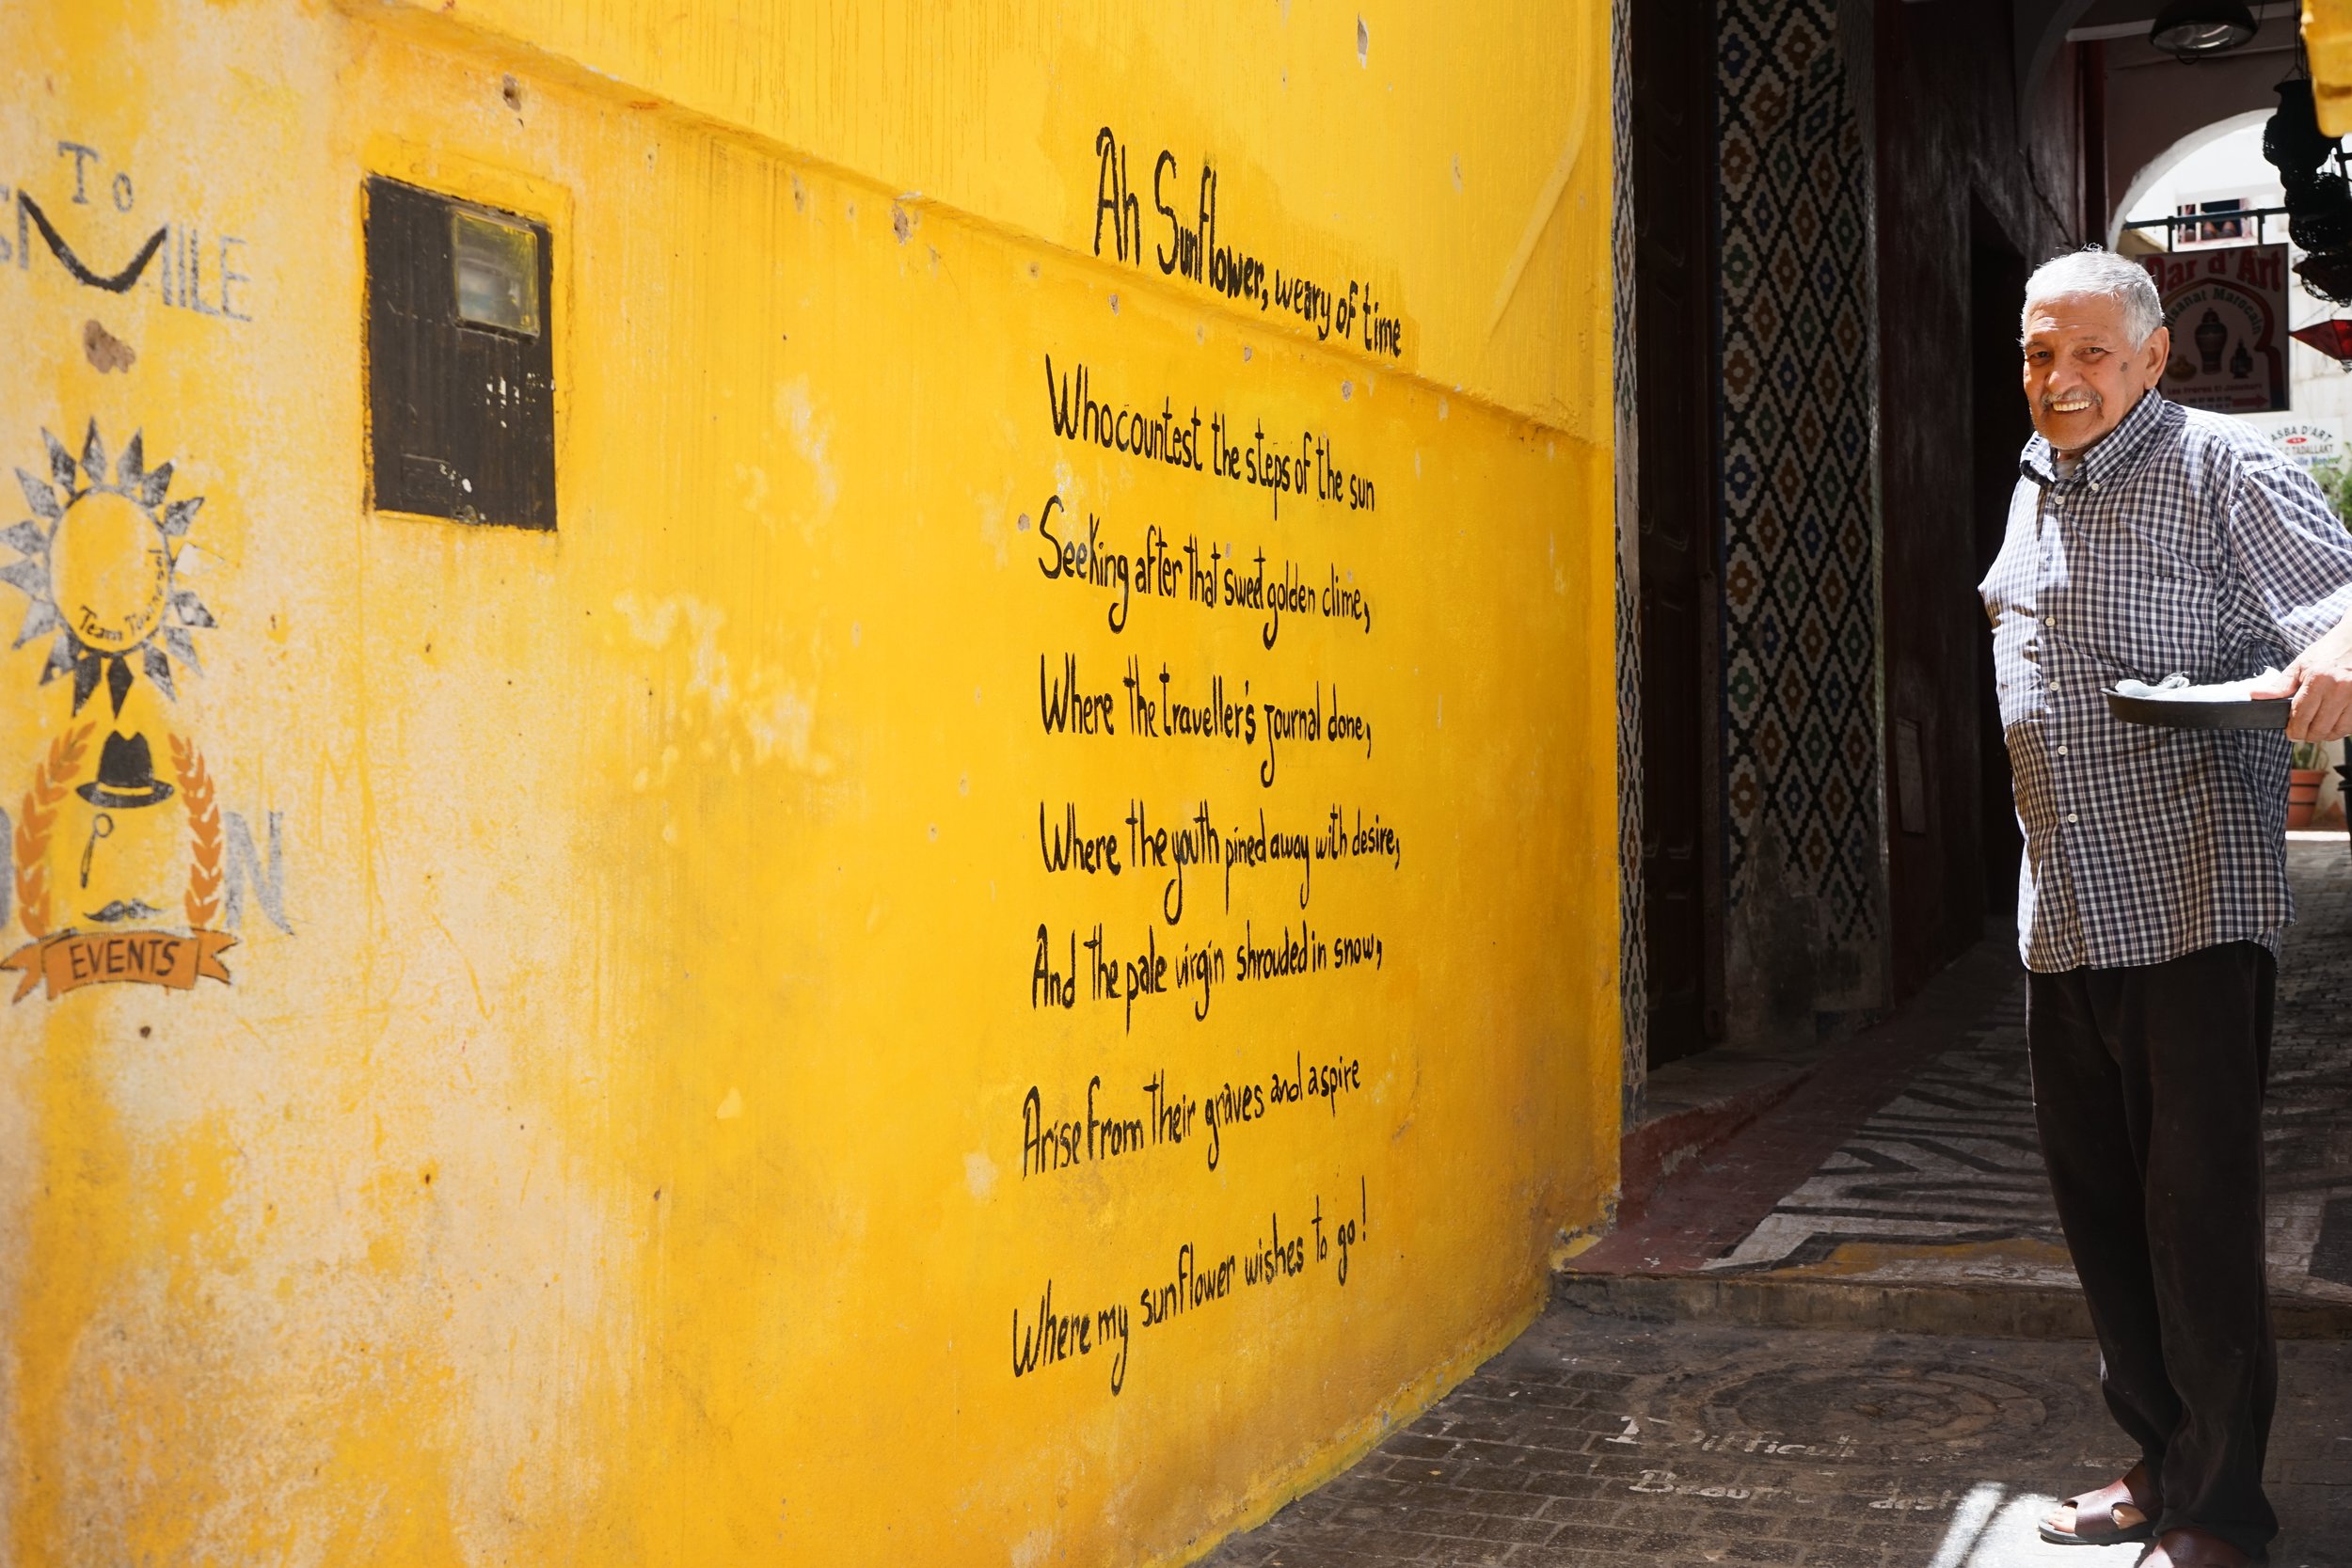 To
SMILE
Team
EVENTS
N
Ah Sunflower, weary of time
Who countest the steps of the sun
Seeking after that sweet golden clime,
Where the traveller's journal done,
Where the youth pined away with desire,
And the pale virgin shrouded in snow,
Arise from their graves and aspire
Where my sunflower wishes to go!
Dar d'Art
Artisanat Marocain
ASBA D'ART
TADALLAKT
Difficult